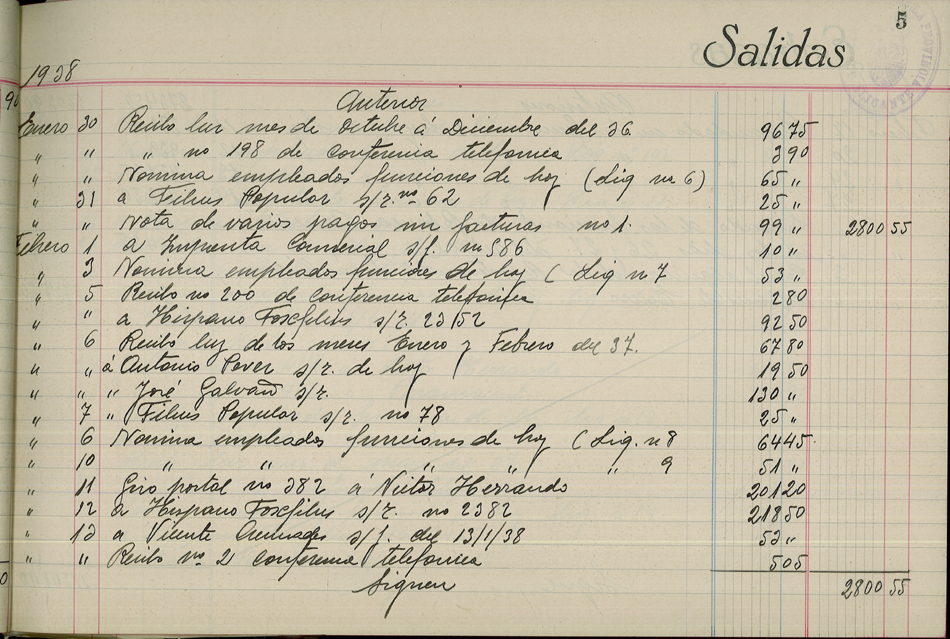 5
Salidas
1938
Anterior
Enero 30 Recibo luz mes de Octubre á Diciembre del 36 96 75
" " " no 198 de conferencia telefonica 3 90
" " Nomina empleados funciones de hoy (Liq nº 6) 65 "
" 31 a Films Popular s/r. nº 62 25 "
" " Nota de varios pagos sin facturas no 1. 99 " 2800 55
Febrero 1 a Imprenta Comercial s/f. nº 586 10 "
" 3 Nomina empleados funciones de hoy ( Liq n 7 53 "
" 5 Recibo no 200 de conferencia telefonica 2 80
" " a Hispano Foxfilms s/r. 23152 92 50
" 6 Recibo luz de los meses Enero y Febrero del 37. 67 80
" " á Antonio Pover s/r. de hoy 19 50
" " " José Galvañ s/r. 130 "
" 7 " Films Popular s/r. no 78 25 "
" 6 Nomina empleados funciones de hoy ( Liq. n 8 64 45
" 10 " " " " " 9 51 "
" 11 Giro postal no 382 á Victor Herrando 201 20
" 12 a Hispano Foxfilms s/r. no 2382 218 50
" 13 a Vicente s/f. del 13/1/38 53 "
" " Recibo nº 2 conferencia telefonica 5 05
Siguen 2800 55